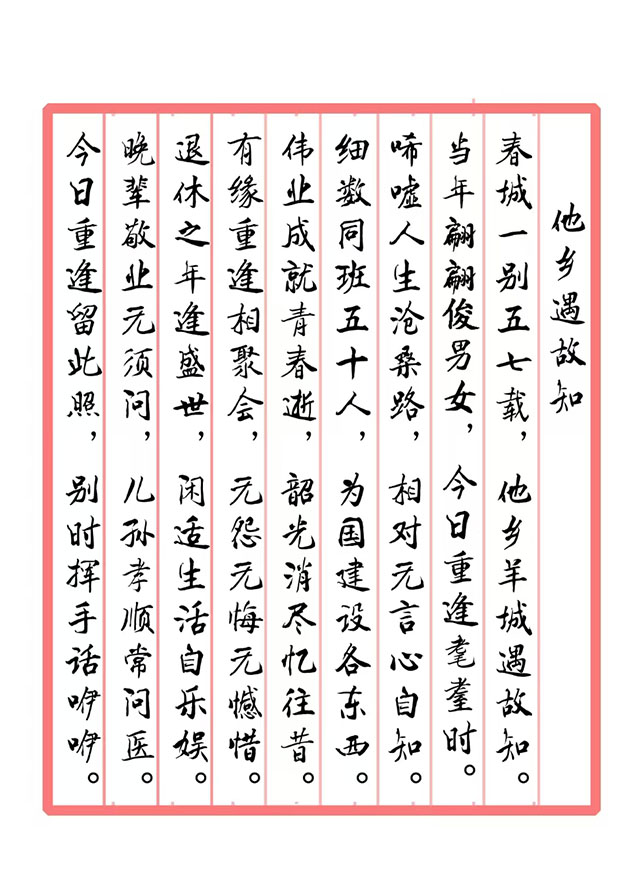 他乡遇故知
春城一别五七载，他乡羊城遇故知。
当年翩翩俊男女，今日重逢耄耋时。
唏嘘人生沧桑路，相对无言心自知。
细数同班五十人，为国建设各东西。
伟业成就青春逝，韶光消尽忆往昔。
有缘重逢相聚会，无怨无悔无憾惜。
退休之年逢盛世，闲适生活自乐娱。
晚辈敬业无须问，儿孙孝顺常问医。
今日重逢留此照，别时挥手话咿咿。